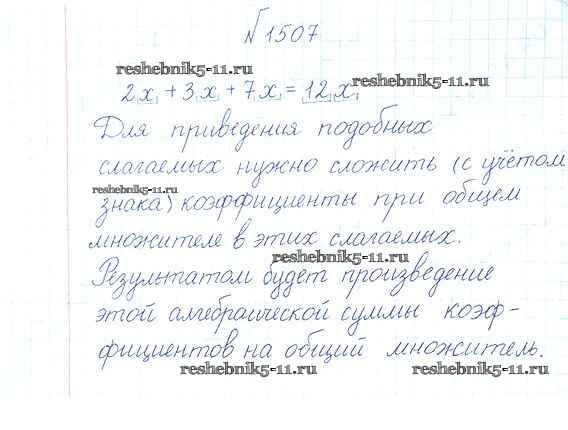 №1507
reshebnik5-11.ru
reshebnik5-11.ru
2x + 3x + 7x = 12x.
Для приведения подобных
слагаемых нужно сложить (с учётом
reshebnik5-11.ru
знака) коэффициенты при общем
множителе в этих слагаемых.
reshebnik5-11.ru
Результатом будет произведение
этой алгебраической суммы коэф-
фициентов на общий множитель.
reshebnik5-11.ru
reshebnik5-11.ru